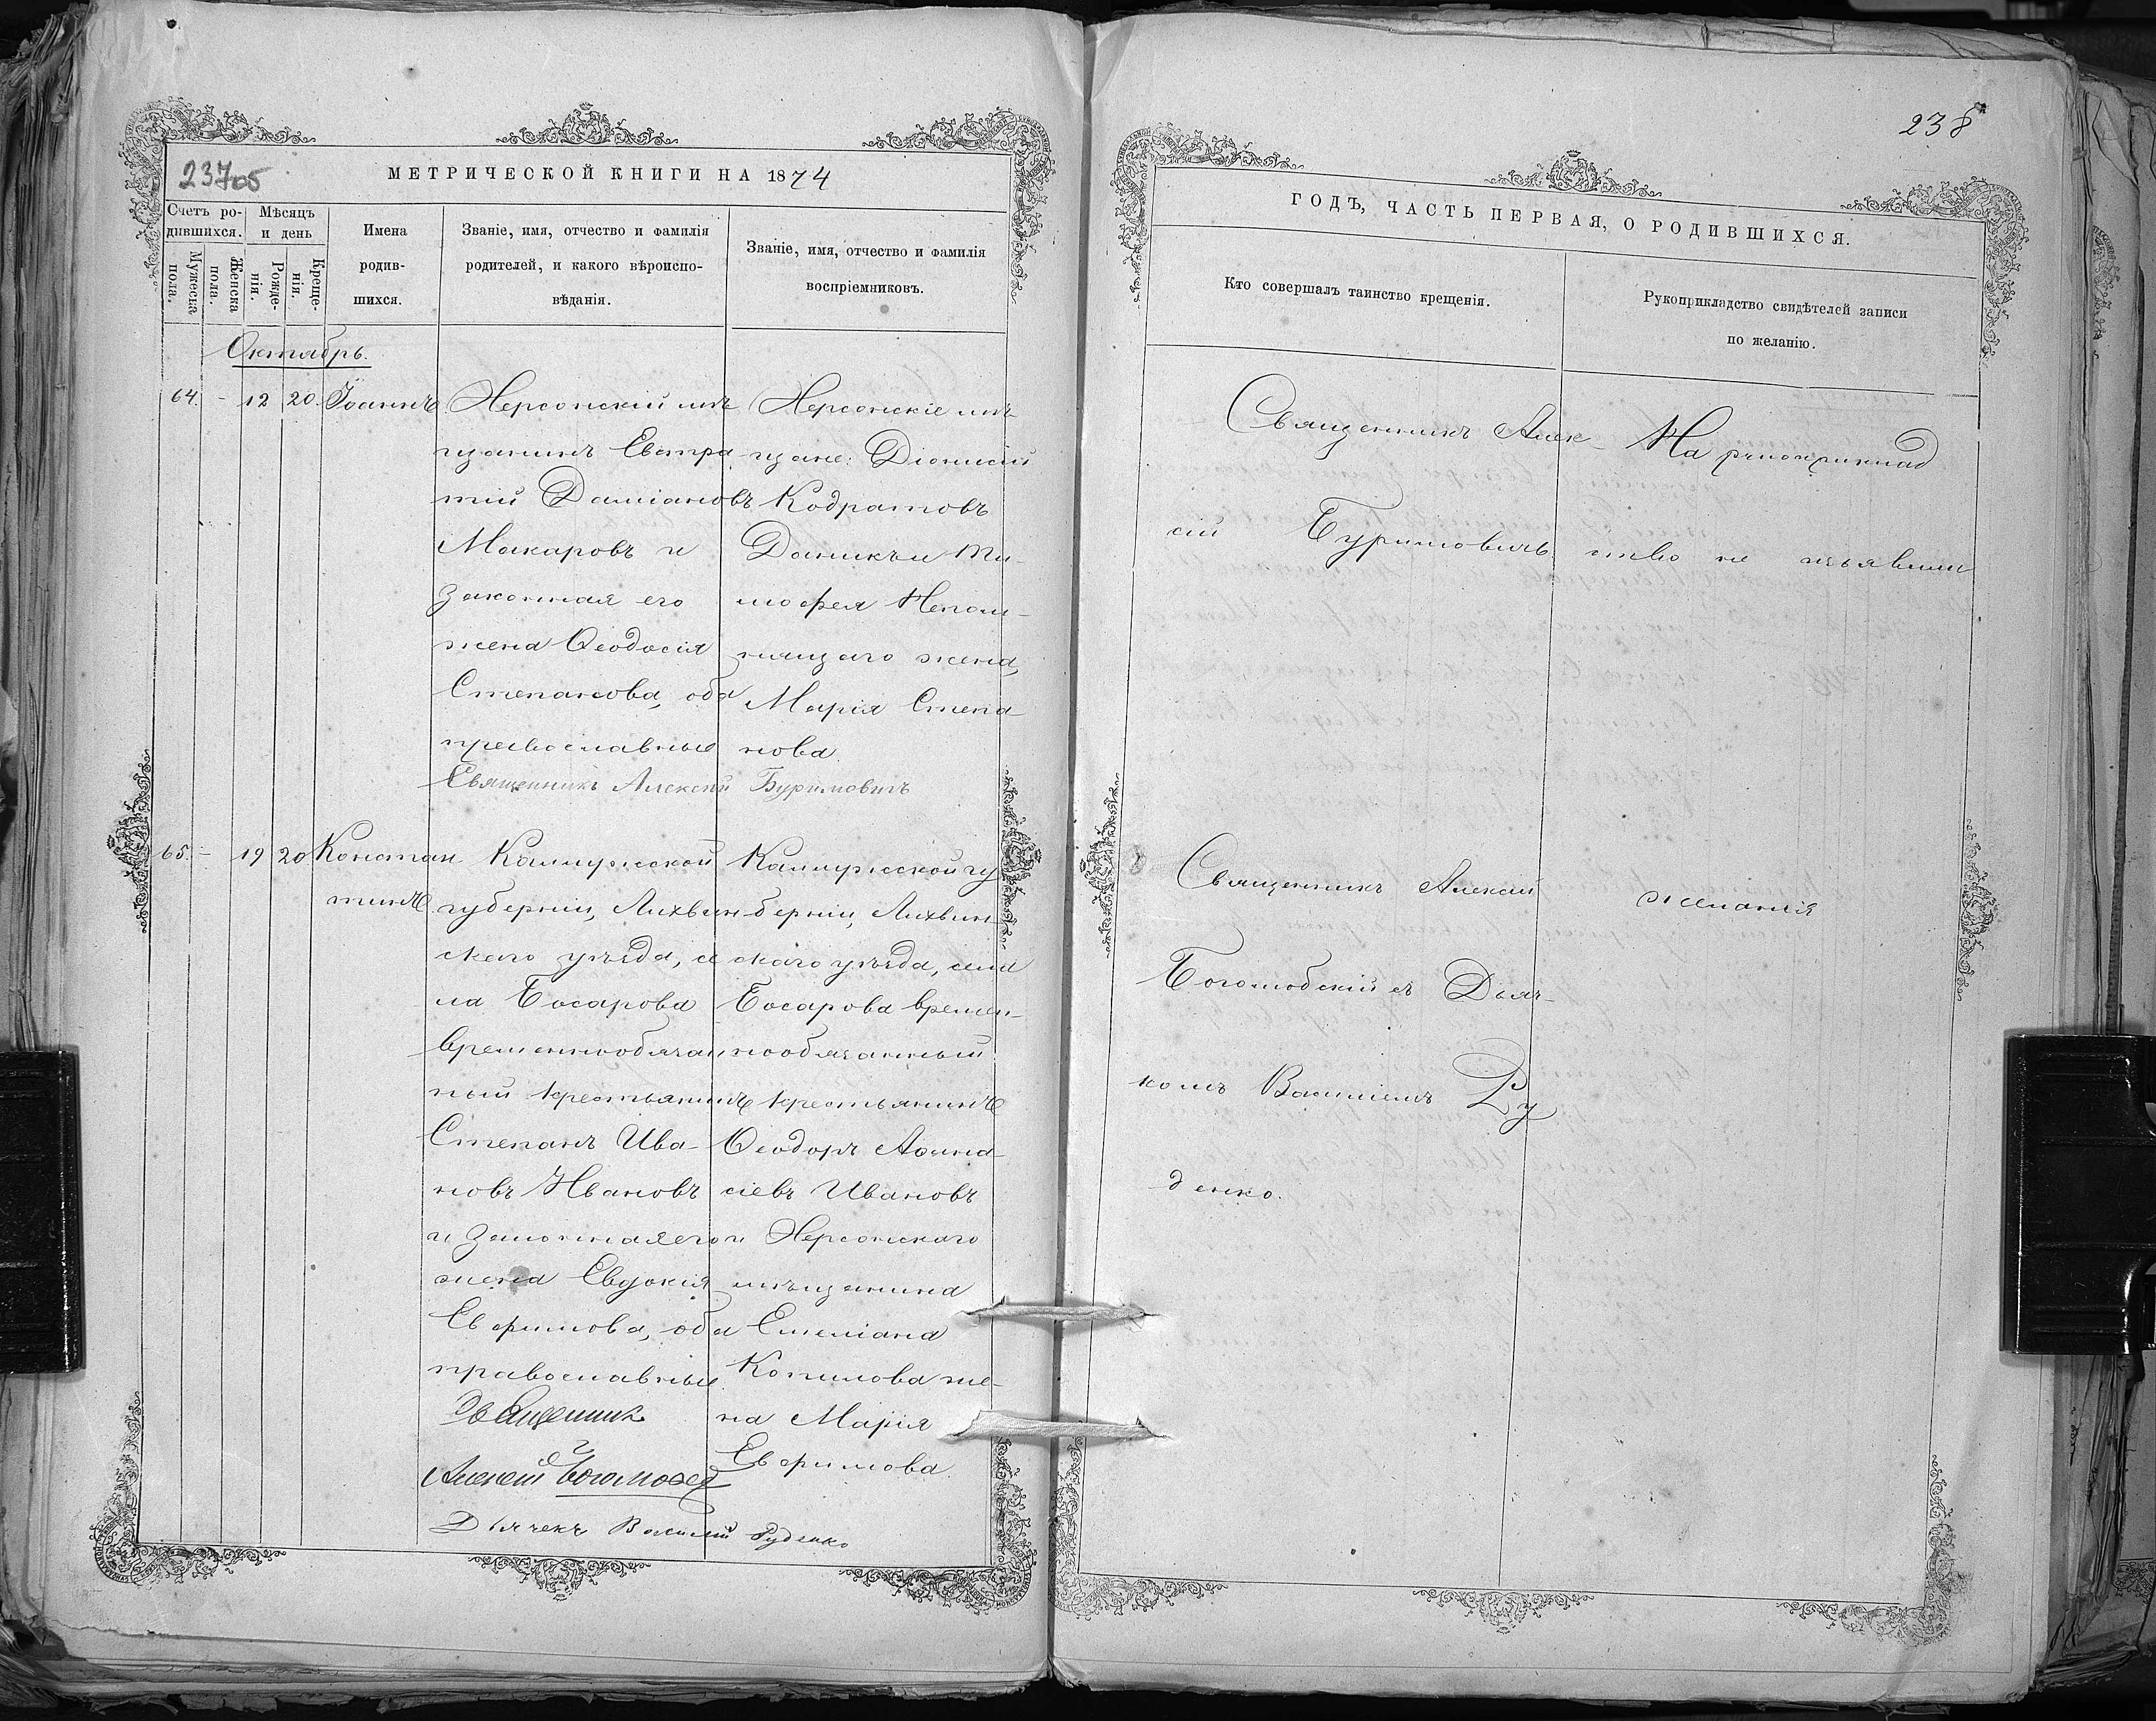 238
23705
МЕТРИЧЕСКОЙ КНИГИ НА 1874
Счетъ ро-
дившихся.
Мужеска
пола.
Женска
пола.
Мѣсяцъ
и день
Рожде-
нія.
Креще-
нія.
Имена
родив-
шихся.
Званіе, имя, отчество и фамилія
родителей, и какого вѣроиспо-
вѣданія.
Званіе, имя, отчество и фамилія
воспріемниковъ.
Октябрь.
64. - 12 20. Іоаннъ
Херсонскій мѣ
щанинъ Евстра
тій Даміановъ
Макаровъ и
законная его
жена Ѳеодосія
Степанова, оба
православные
Херсонскіе мѣ-
щане: Діонисій
Кодратовъ
Тимофея
жена,
Марія Степа-
нова.
Священникъ Алексій Буримовичъ
65. - 19 20 Констан
тинъ
Каллужской
губерніи, Лихвин
скаго уѣзда, се
ла Босарова
временнообязан
ный крестьянинъ
Степанъ Ива-
новъ Ивановъ
и законная его
жена Евдокія
Евфимова, оба
православные
Священникъ
Алексій
Каллужской гу
берніи, Лихвин
скаго уѣзда, села
Босарова времен-
нообязанный
крестьянинъ
Ѳеодоръ Аѳана
сіевъ Ивановъ
и Херсонскаго
мѣщанина
Емеліана
Копилова же-
на Марія
Евфимова
Дьячекъ Василій Руденко
ГОДЪ, ЧАСТЬ ПЕРВАЯ, О РОДИВШИХСЯ.
Кто совершалъ таинство крещенія.
Рукоприкладство свидѣтелей записи
по желанію.
Священникъ Алек-
сій Буримовичъ.
На рукоприклад
ство не изъявили
Священникъ Алексій
Боголюбскій съ Дьяч-
комъ Василіемъ Ру
денко.
желанія